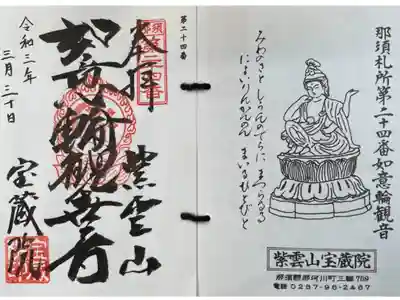 那須札所第二十四番如意輪観音
みわのさと しうんのてらに まつらるる
にょいりんかんのん まいるひとびと
紫雲山宝蔵院
那須郡那珂川町三輪
電話 0287-96-2467
第二十四番
那須
第二十四番
奉拝
紫雲山
如意輪観世音
宝蔵院
令和三年
三月三十日